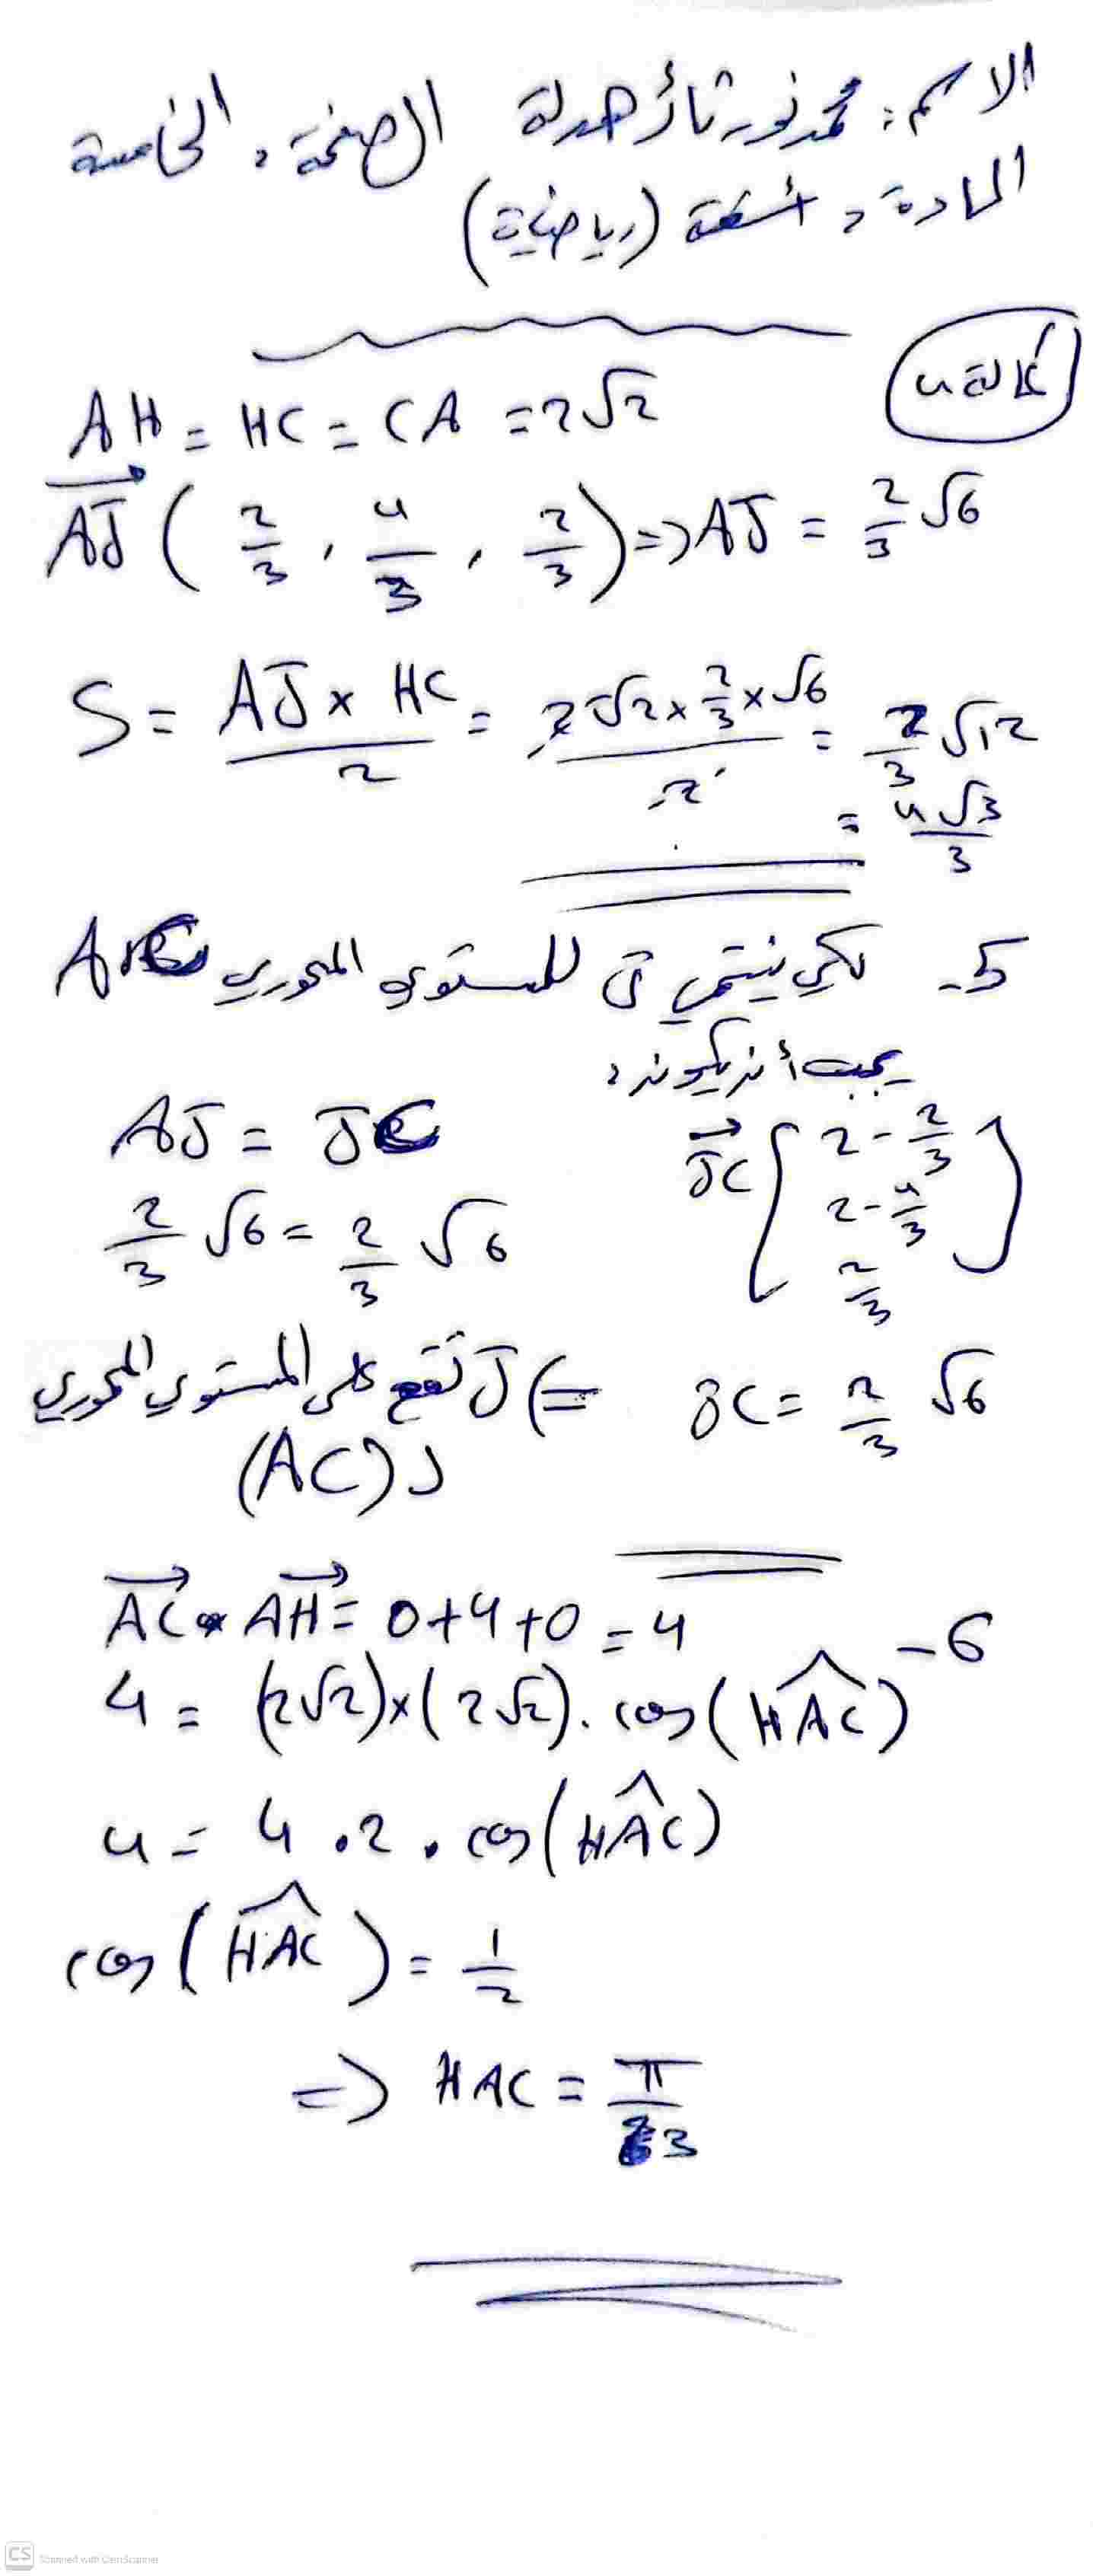 الاسم: محمد نور ثائر حدلة الصفحة: الخامسة
المادة: أتمتة (رياضيات)
تالة 4
AH = HC = CA = 2√2
AJ→ (2/3, 4/3, 2/3) => AJ = 2/3 √6
S = (AJ × HC)/2 = (2√2 × 2/3 × √6)/2 = 2/3 √12
= 4√3/3
5- لكي ينتمي J للمستوي المحوري AC
يجب أن يكون:
AJ = JC
JC→ [2 - 2/3, 2 - 4/3, 2/3]
2/3 √6 = 2/3 √6
JC = 2/3 √6 => J تقع على المستوي المحوري
لـ (AC)
6- AC→ · AH→ = 0+4+0 = 4
4 = (2√2)×(2√2). cos(HAC)
4 = 4 . 2 . cos(HAC)
cos(HAC) = 1/2
=> HAC = π/3
CS Scanned with CamScanner